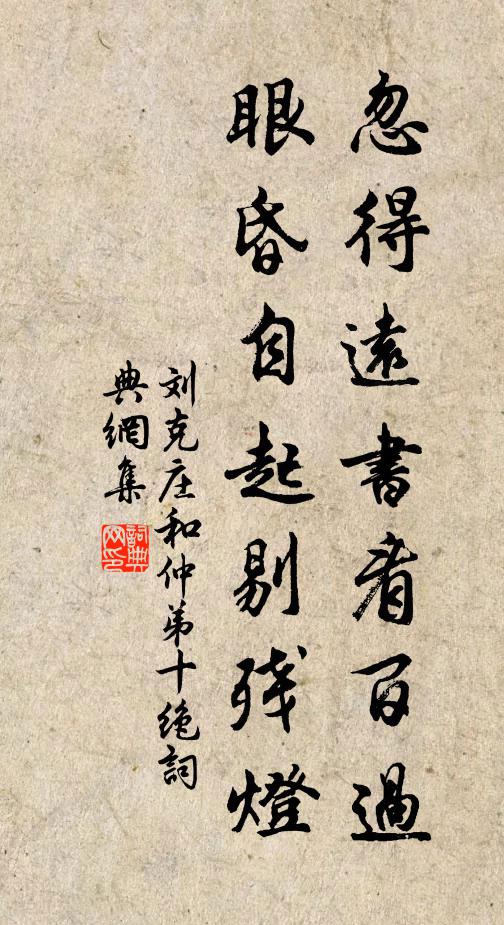 忽得遠書看百過
眼昏自起剔残燈
刘克庄和仲弟十绝詞
典網集
詞典网印